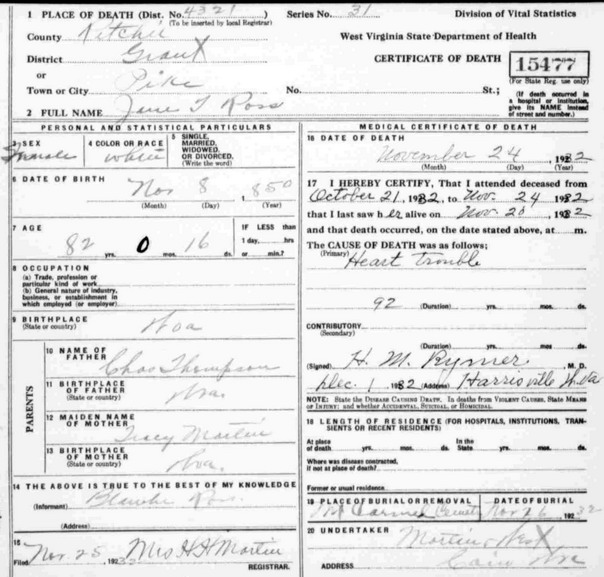 1 PLACE OF DEATH (Dist. No. 4321) Series No. 31 Division of Vital Statistics
(To be inserted by local Registrar)
County Ritchie West Virginia State Department of Health
District Grant X CERTIFICATE OF DEATH 15477
or (For State Reg. use only)
Town or City Pike No. St.; (If death occurred in a hospital or institution, give its NAME instead of street and number.)
2 FULL NAME Jane T Ross
PERSONAL AND STATISTICAL PARTICULARS
3 SEX Female 4 COLOR OR RACE White 5 SINGLE, MARRIED, WIDOWED, OR DIVORCED. (Write the word)
6 DATE OF BIRTH Nov 8 1850
(Month) (Day) (Year)
7 AGE IF LESS than
82 yrs. 0 mos. 16 ds. 1 day, hrs
or min.?
8 OCCUPATION
(a) Trade, profession or
particular kind of work
(b) General nature of industry,
business, or establishment in
which employed (or employer)
9 BIRTHPLACE
(State or country) Wva
PARENTS
10 NAME OF
FATHER Chas Thompson
11 BIRTHPLACE
OF FATHER Wva.
(State or country)
12 MAIDEN NAME
OF MOTHER Martin
13 BIRTHPLACE
OF MOTHER Wva
(State or country)
14 THE ABOVE IS TRUE TO THE BEST OF MY KNOWLEDGE
(Informant) Blanche Ross
(Address)
15
Filed Nov 25, 1932 Mrs H H Martin
REGISTRAR.
MEDICAL CERTIFICATE OF DEATH
16 DATE OF DEATH
November 24, 1932
(Month) (Day) (Year)
17 I HEREBY CERTIFY, That I attended deceased from
October 21, 1932, to Nov. 24 1932
that I last saw her alive on Nov. 20, 1932
and that death occurred, on the date stated above, at m.
The CAUSE OF DEATH was as follows;
(Primary) Heart trouble
92 (Duration) yrs. mos. ds.
CONTRIBUTORY
(Secondary)
(Duration) yrs. mos. ds.
(Signed) H. M. Rymer, M. D.
Dec. 1 1932 (Address) Harrisville W.Va
NOTE: State the DISEASE CAUSING DEATH. In deaths from VIOLENT CAUSES, State MEANS
OF INJURY: and whether ACCIDENTAL, SUICIDAL, OR HOMICIDAL.
18 LENGTH OF RESIDENCE (FOR HOSPITALS, INSTITUTIONS, TRAN-
SIENTS OR RECENT RESIDENTS)
At place In the
of death yrs. mos. ds. State yrs. mos. ds.
Where was disease contracted,
if not at place of death?
Former or usual residence
19 PLACE OF BURIAL OR REMOVAL DATE OF BURIAL
Mt Carmel Cemetery Nov 26 1932
20 UNDERTAKER Martin West X
ADDRESS Cairo Wva